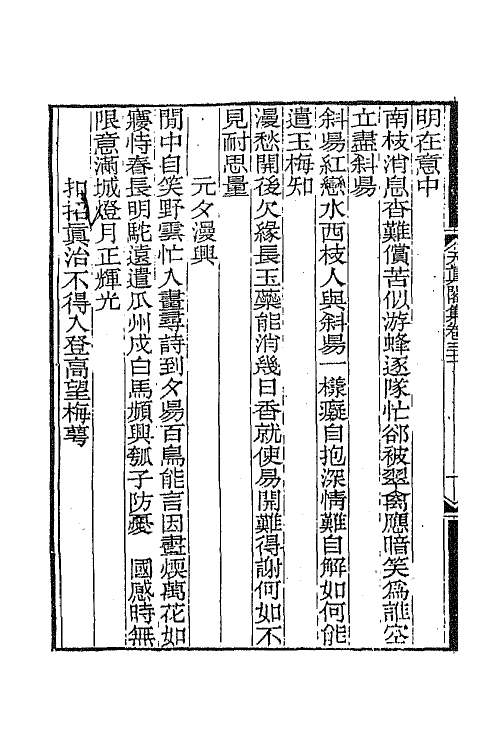 明在意中
南枝消息杳難償苦似游蜂逐隊忙郤被翠禽應暗笑爲誰空
立盡斜昜
斜昜紅戀水西枝人與斜昜一樣癡自抱深情難自解如何能
遣玉梅知
漫愁開後欠緣長玉蘂能消幾日香就使易開難得謝何如不
見耐思量
元夕漫興
閒中自笑野雲忙入畫尋詩到夕昜百鳥能言因盡煗萬花如
㝱恃春長明駝遠遣瓜州戍白馬頻興瓠子防憂　國感時無
限意滿城燈月正輝光
招眞治不得入登高望梅萼
天眞閣集卷三